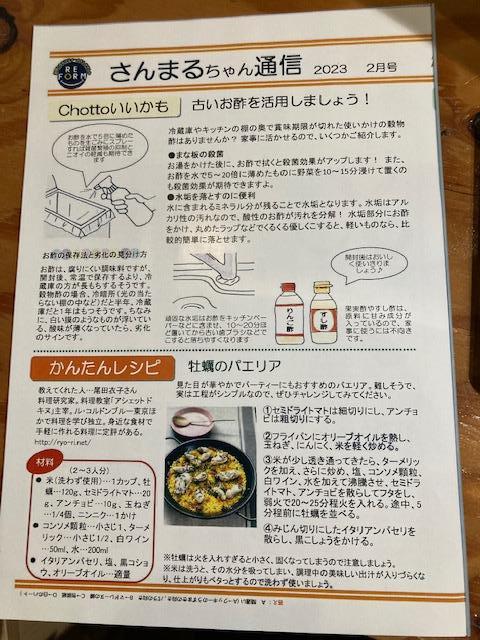 RE
FORM
さんまるちゃん通信 2023 2月号
Chottoいいかも 古いお酢を活用しましょう！
お酢を水で5倍に薄めたものを生ごみにスプレーすれば雑菌繁殖の抑制とニオイの軽減も期待できます
冷蔵庫やキッチンの棚の奥で賞味期限が切れた使いかけの穀物
酢はありませんか？ 家事に活かせるので、いくつかご紹介します。
●まな板の殺菌
お湯をかけた後に、お酢で拭くと殺菌効果がアップします！ また、
お酢を水で5～20倍に薄めたものに野菜を10～15分浸けて置くの
も殺菌効果が期待できますよ。
●水垢を落とすのに便利
水に含まれるミネラル分が残ることで水垢となります。水垢はアル
カリ性の汚れなので、酸性のお酢が汚れを分解！ 水垢部分にお酢
をかけ、丸めたラップなどでくるくる優しくこすると、軽いものなら、比
較的簡単に落とせます。
お酢の保存法と劣化の見分け方
お酢は、腐りにくい調味料ですが、
開封後、常温で保存するより、冷
蔵庫の方が長もちするそうです。
穀物酢の場合、冷暗所(光の当た
らない棚の中など)だと半年、冷蔵
庫だと1年はもつそうです。ちなみ
に、白い膜のようなものが浮いてい
る、酸味が薄くなっていたら、劣化
のサインです。
頑固な水垢はお酢をキッチンペー
パーなどに含ませ、10～20分ほ
ど置いてから古い歯ブラシなどで
こすると落ちやすくなります
りんご酢
すし酢
開封後はおいし
く使いきりま
しょう♪
果実酢やすし酢は、
原料に甘み成分が
入っているので、家
事に使うには不向き
です。
かんたんレシピ 牡蠣のパエリア
教えてくれた人…尾田衣子さん
料理研究家。料理教室「アシェットド
キエ」主宰。ル・コルドンブルー東京ほ
かで料理を学び独立。身近な食材で
手軽に作れる料理に定評がある。
http://ryo-ri.net/
見た目が華やかでパーティーにもおすすめのパエリア。難しそうで、
実は工程がシンプルなので、ぜひチャレンジしてみてください。
材料
(2～3人分)
● 米(洗わず使用)…1カップ、牡
蠣…120g、セミドライトマト…20
g、アンチョビ…10g、玉ねぎ
…1/4個、ニンニク…1かけ
● コンソメ顆粒…小さじ1、ター
メリック…小さじ1/2、白ワイン
…50ml、水…200ml
● イタリアンパセリ、塩、黒コショ
ウ、オリーブオイル…適量
①セミドライトマトは細切りにし、アンチョ
ビは粗切りにする。
②フライパンにオリーブオイルを熱し、
玉ねぎ、にんにく、米を軽く炒める。
③米が少し透き通ってきたら、ターメリッ
クを加え、さらに炒め、塩、コンソメ顆粒、
白ワイン、水を加えて沸騰させ、セミドラ
イトマト、アンチョビを散らしてフタをし、
弱火で20～25分程火を入れる。途中、5
分程前に牡蠣を並べる。
④みじん切りにしたイタリアンパセリを
散らし、黒こしょうをかける。
※牡蠣は火を入れすぎると小さく、固くなってしまうので注意しましょう。
※米は洗うと、その水分を吸ってしまい、調理中の美味しい出汁が入りづらくな
り、仕上がりもベタっとするので洗わず使いましょう。